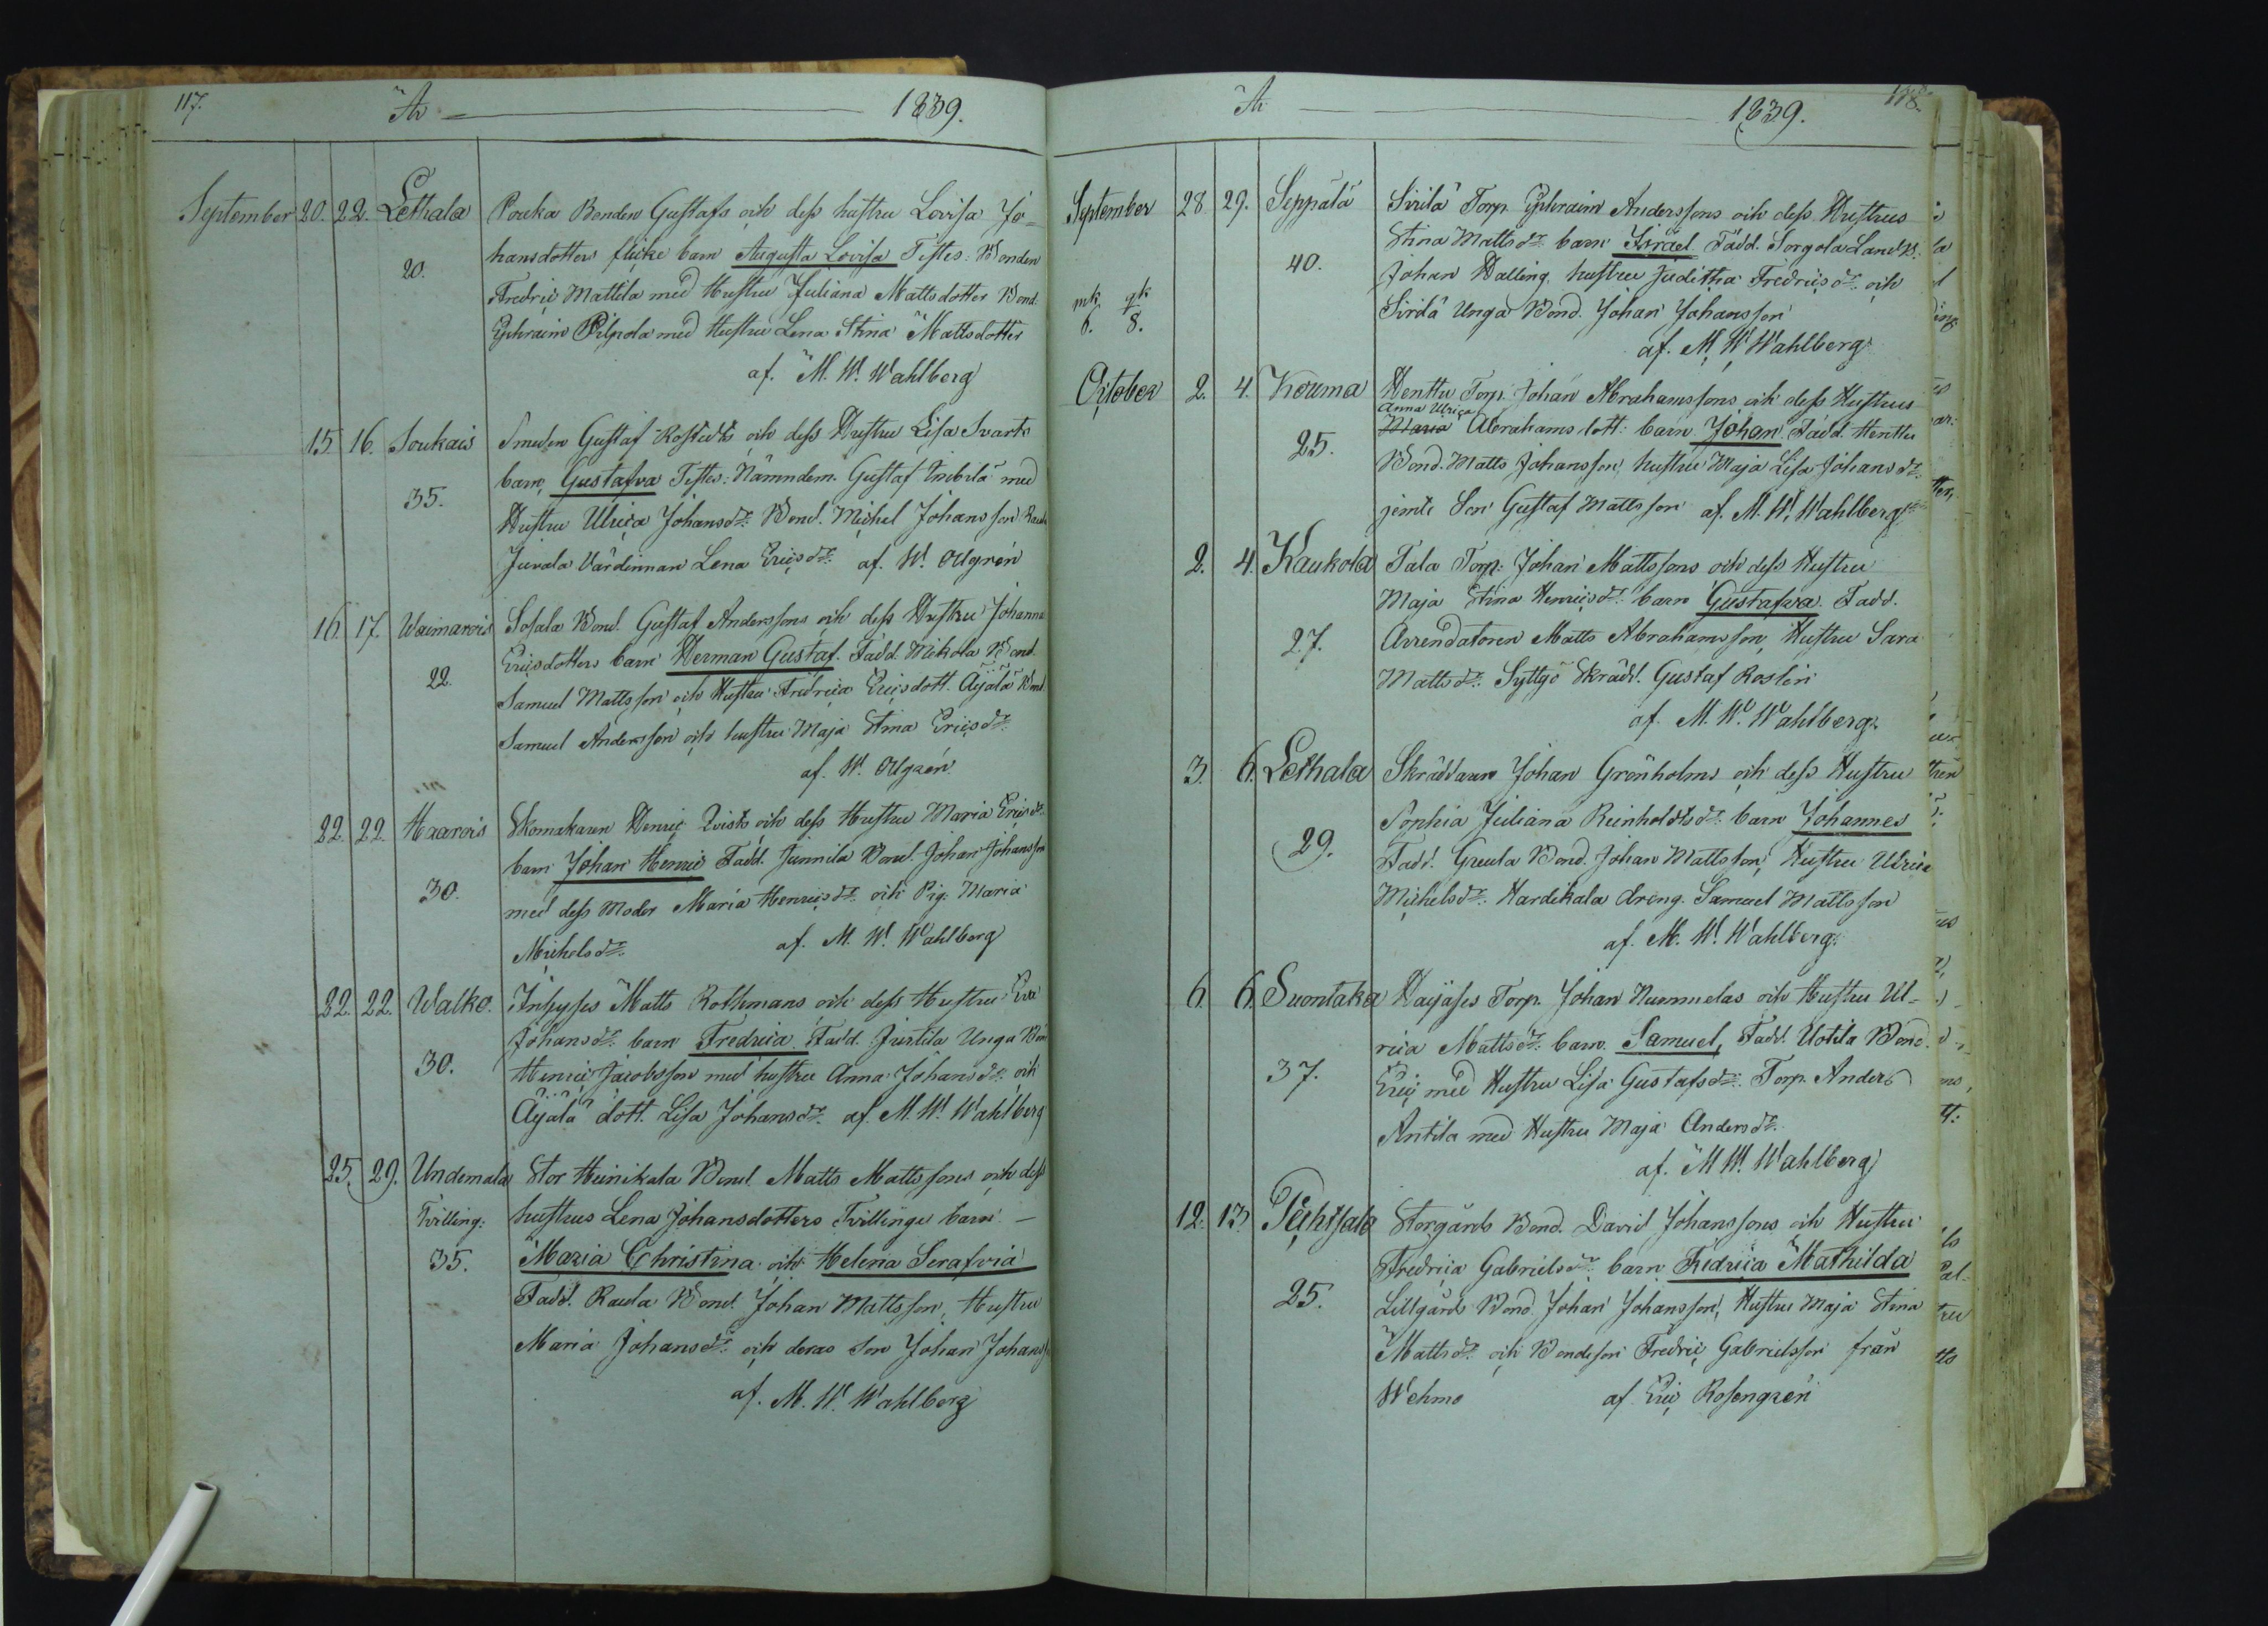 117. År 1839.
September 20. 22. Lethala Pouka Bonden Gustafs och dess hustru Lovisa Jo=
20. hansdotters flicke barn Augusta Lovisa Testes: Bonden
Fredric Mattila med Hustru Juliana Mattsdotter Bond.
Ephraim Pilpola med Hustru Lena Stina Mattsdotter
af. M. W. Wahlberg
15 16. Soukais Smeden Gustaf Rostedts och dess Hustru Lisa Svarts
35. barn Gustafva Testes: Nämndem. Gustaf med
Hustru Ulrica Johansdr. Bond. Michel Johansson
Juvala Värdinnan Lena Ericsdr. af. W. Ollgrén
16 17. Waimarois Sosala Bond. Gustaf Anderssons och dess Hustru Johanna
22. Ericsdotters barn Herman Gustaf. Fadd. Mikola Bond.
Samuel Mattsson och Hustru Fredrica Ericsdott. Äyälä Bond.
Samuel Andersson och hustru Maja Stina Ericsdr.
af. W. Ollgrén.
22. 22. Haarois Skomakaren Henric Qvists och dess Hustru Maria Ericsdr.
30. barn Johan Henric Fadd. Junnila Bond. Johan Johansson
med dess Moder Maria Henricsdr. och Pig. Maria
Michelsdr. af. M. W. Wahlberg
22. 22. Walko. Inhyses Matts Rothmans och dess Hustru Eva
30. Johansdr. barn Fredrica. Fadd. Juttila Unga Bon
Henric Jacobsson med hustru Anna Johansdr. och
Äyälä dott. Lisa Johansdr. af. M. W. Wahlberg
25. 29. Undemala Stor Heinikala Bond. Matts Mattssons och dess
Tvilling: hustrus Lena Johansdotters Tvillinge barn —
35. Maria Christina och Helena Serafvia
Fadd. Raula Bond. Johan Mattsson, Hustru
Maria Johansdr. och deras son Johan Johanss
af. M. W. Wahlberg
År 1839. 118.
September 28. 29. Seppälä Sirilä Torp. Ephraim Anderssons och dess Hustrus
40. Stina Mattsdr. barn Israel Fadd. Sorgola Landb.
Johan Walling hustru Juditha Fredricsdr. och
mk. qk. Sirilä Unga Bond. Johan Johansson
6. 8. af. M. W. Wahlberg
October 2. 4. Kouma Henttu Torp. Johan Abrahamssons och dess Hustrus
Anna Ulrica
25. Maria Abrahams dott: barn Johan Fadd. Henttu
Bond. Matts Johansson, hustru Maja Lisa Johansdr.
jemte Son Gustaf Mattsson af. M. W. Wahlberg
2. 4. Kaukola Tala Torp: Johan Mattssons och dess Hustru
Maja Stina Henricsdr. barn Gustafva. Fadd.
27. Arrendatoren Matts Abrahamsson, Hustru Sara
Mattsdr. Syttyö Skrädd. Gustaf Roslin
af. M. W. Wahlberg.
3. 6. Lethala Skräddaren Johan Grönholms och dess Hustru
Sophia Juliana Reinholdtsdr. barn Johannes
29. Fadd. Greula Bond. Johan Mattsson, Hustru Ulrica
Michelsdr. Hardikala dreng. Samuel Mattsson
af. M. W. Wahlberg.
6. 6. Suontaka Hayäses Torp. Johan Nummelas och Hustru Ul=
rica Mattsdr. barn Samuel, Fadd. Uotila Bond.
37. Eric med Hustru Lisa Gustafsdr. Torp. Anders
Antila med Hustru Maja Andersdr.
af. M. W. Wahlberg
12. 13. Storgårds Bond. David Johanssons och Hustru
Fredrica Gabrielsdr. barn Fredrica Mathilda
25. Lillgårds Bond. Johan Johansson, Hustru Maja Stina
Mattsdr. och Bondeson Fredric Gabrielsson från
Wehmo af Eric Rosengrén